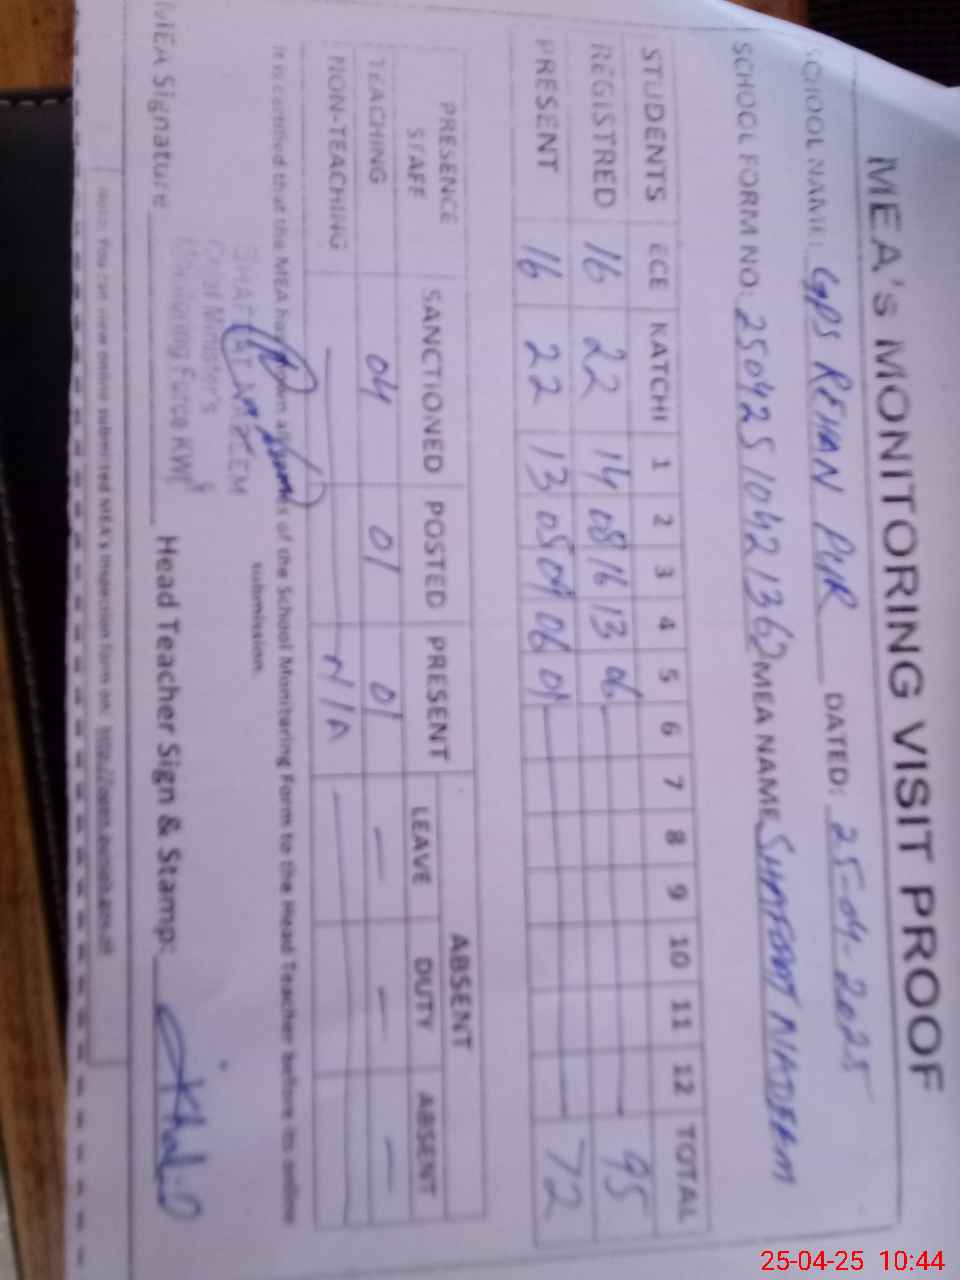 MEA's MONITORING VISIT PROOF
SCHOOL NAME: GPS REHAN PUR DATED: 25-04-2025
SCHOOL FORM NO: 25042510421362 MEA NAME
STUDENTS ECE KATCHI 1 2 3 4 5 6 7 8 9 10 11 12 TOTAL
REGISTRED 16 22 14 08 16 13 06 95
PRESENT 16 22 13 06 72
PRESENCE STAFF SANCTIONED POSTED PRESENT ABSENT
LEAVE DUTY ABSENT
TEACHING 04 01 01 — — —
NON-TEACHING — N/A —
It is certified that the MEA has of the School Monitoring Form to the Head Teacher before its online
submission.
MEA Signature Head Teacher Sign & Stamp:
Chief Minister's
Monitoring Force
Note: You can view online submitted MEA's inspection form on:
25-04-25 10:44